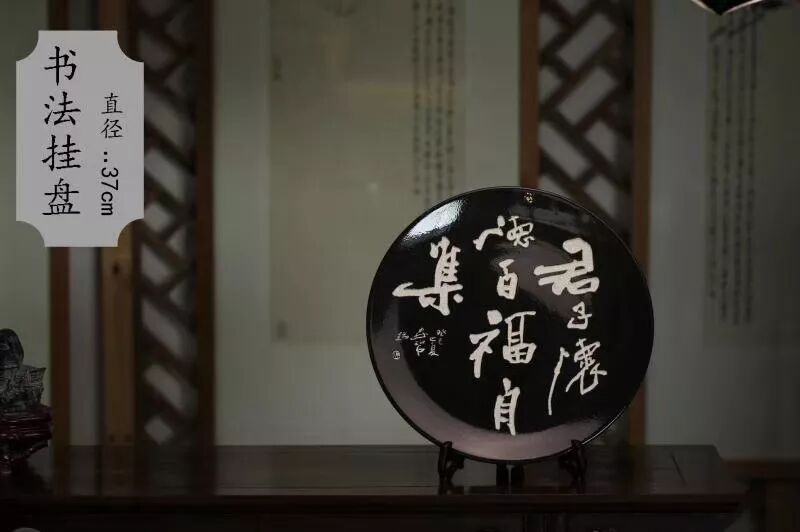 书法挂盘
直径:37cm
君子怀
德百福自
集
癸巳夏